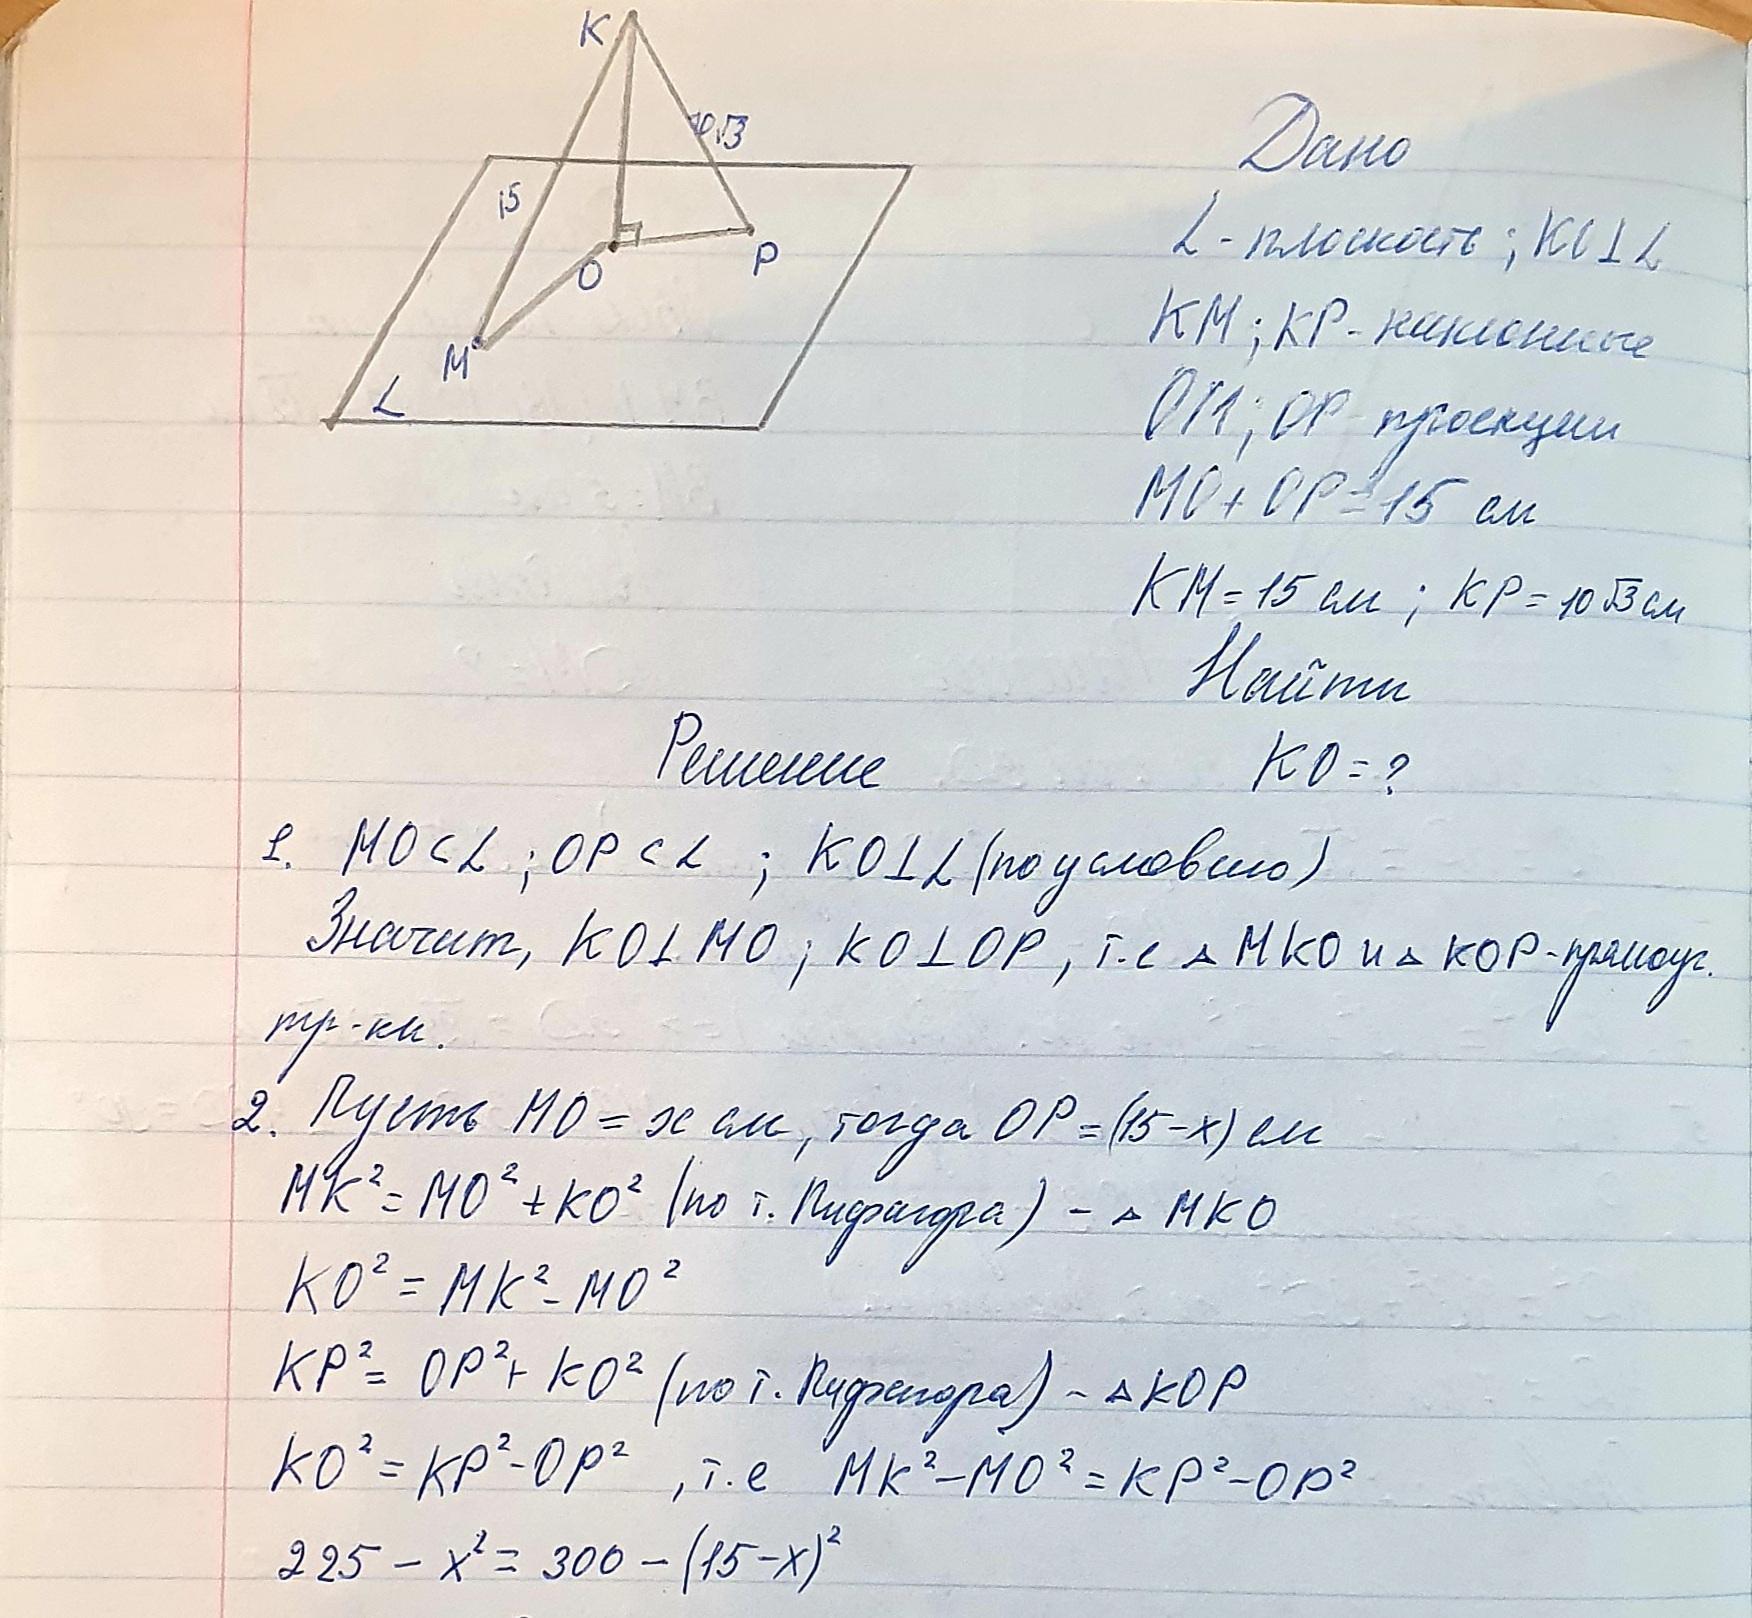 K
10√3
15
O
P
M
L
Дано
L - плоскость ; KO⊥L
KM ; KP - наклонные
OM ; OP - проекции
MO + OP = 15 см
KM = 15 см ; KP = 10√3 см
Найти
KO = ?
Решение
1. MO⊂L ; OP⊂L ; KO⊥L (по условию)
Значит, KO⊥MO ; KO⊥OP, т.е ▵ MKO и ▵ KOP - прямоуг.
тр-ки.
2. Пусть MO = x см, тогда OP = (15-x) см
MK² = MO² + KO² (по т. Пифагора) - ▵ MKO
KO² = MK² - MO²
KP² = OP² + KO² (по т. Пифагора) - ▵ KOP
KO² = KP² - OP², т.е MK² - MO² = KP² - OP²
225 - x² = 300 - (15-x)²